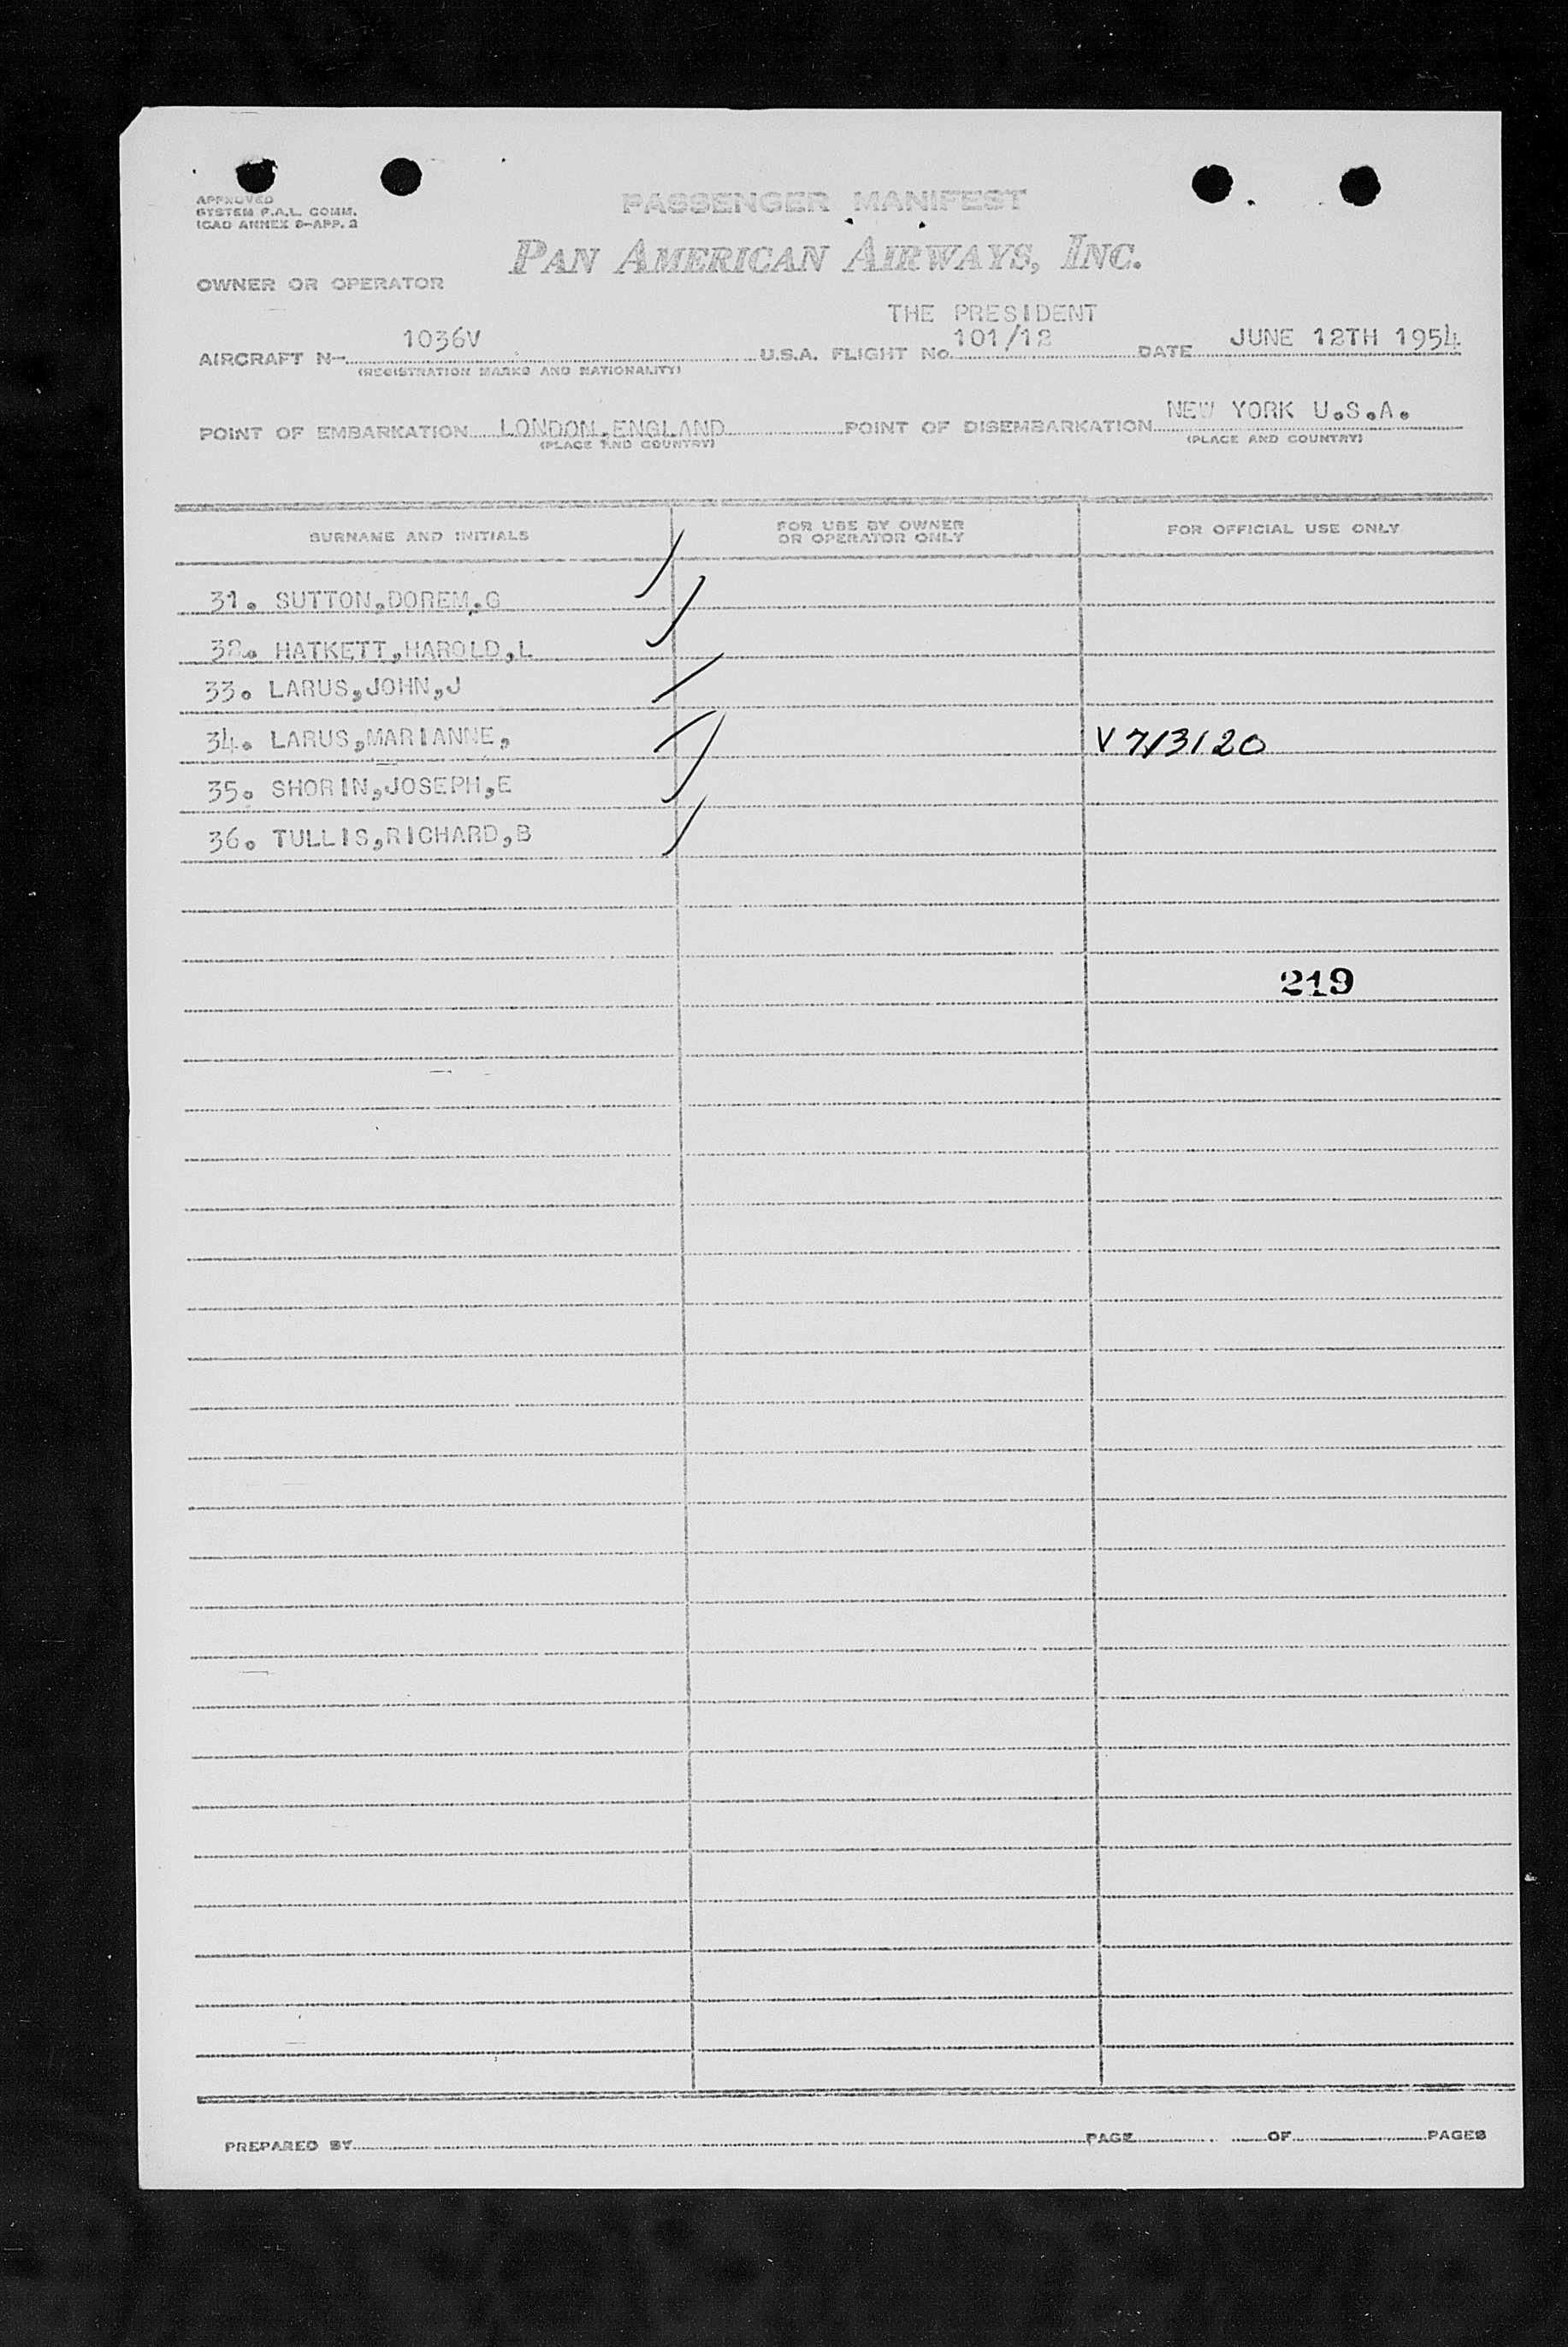 APPROVED
SYSTEM F.A.L. COMM.
ICAO ANNEX 9-APP. 2
PASSENGER MANIFEST
PAN AMERICAN AIRWAYS, INC.
OWNER OR OPERATOR
THE PRESIDENT
AIRCRAFT N- 1036V U.S.A. FLIGHT No. 101/12 DATE JUNE 12TH 1954
(REGISTRATION MARKS AND NATIONALITY)
POINT OF EMBARKATION LONDON,ENGLAND POINT OF DISEMBARKATION NEW YORK U.S.A.
(PLACE AND COUNTRY) (PLACE AND COUNTRY)
SURNAME AND INITIALS FOR USE BY OWNER OR OPERATOR ONLY FOR OFFICIAL USE ONLY
31. SUTTON,DOREM,G
32. HATKETT,HAROLD,L
33. LARUS,JOHN,J
34. LARUS,MARIANNE, V 713120
35. SHORIN,JOSEPH,E
36. TULLIS,RICHARD,B
219
PREPARED BY PAGE OF PAGES